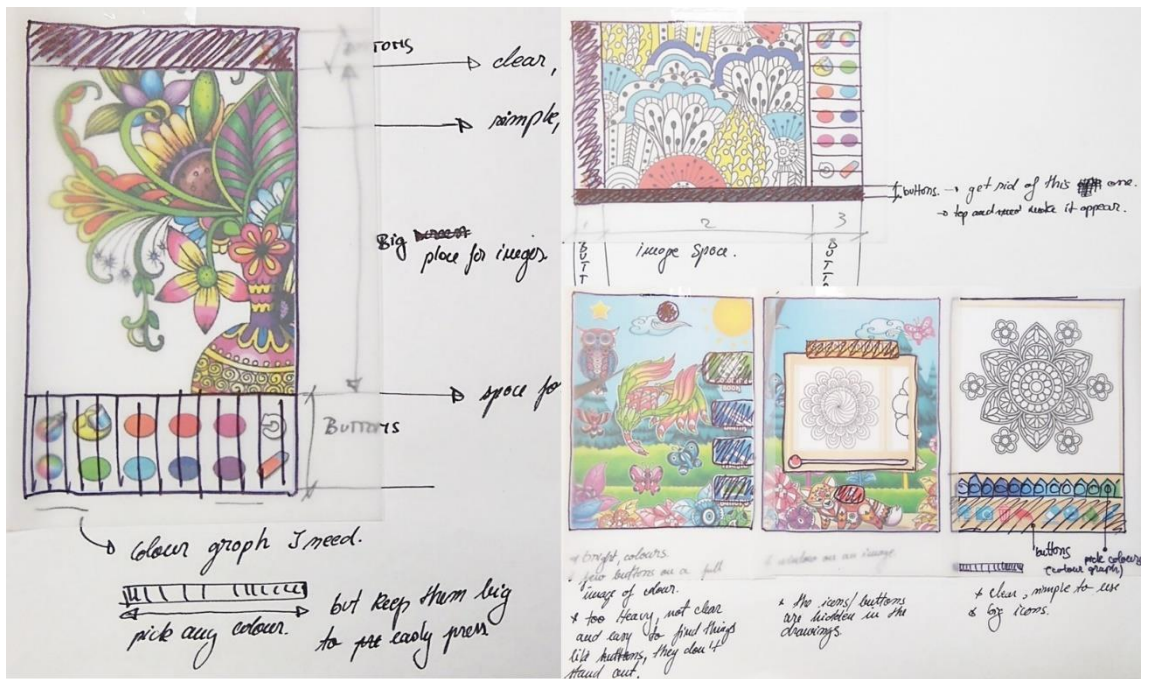 TONS
clear,
simple,
Big
place for images
space fo
BUTTONS
Colour graph I need.
pick any colour.
but keep them big
to easly press
buttons. → get rid of this one.
→ top and need make it appear.
1
2
3
BUTT
image space.
BUTT
* bright, colours.
* few buttons on a full
image of colour.
* too heavy, not clear
and easy to find things
like buttons, they don't
stand out.
* window on an image
* the icons/buttons
are hidden in the
drawings.
buttons
pick colours
(colour graph)
* clear, simple to use
* big icons.